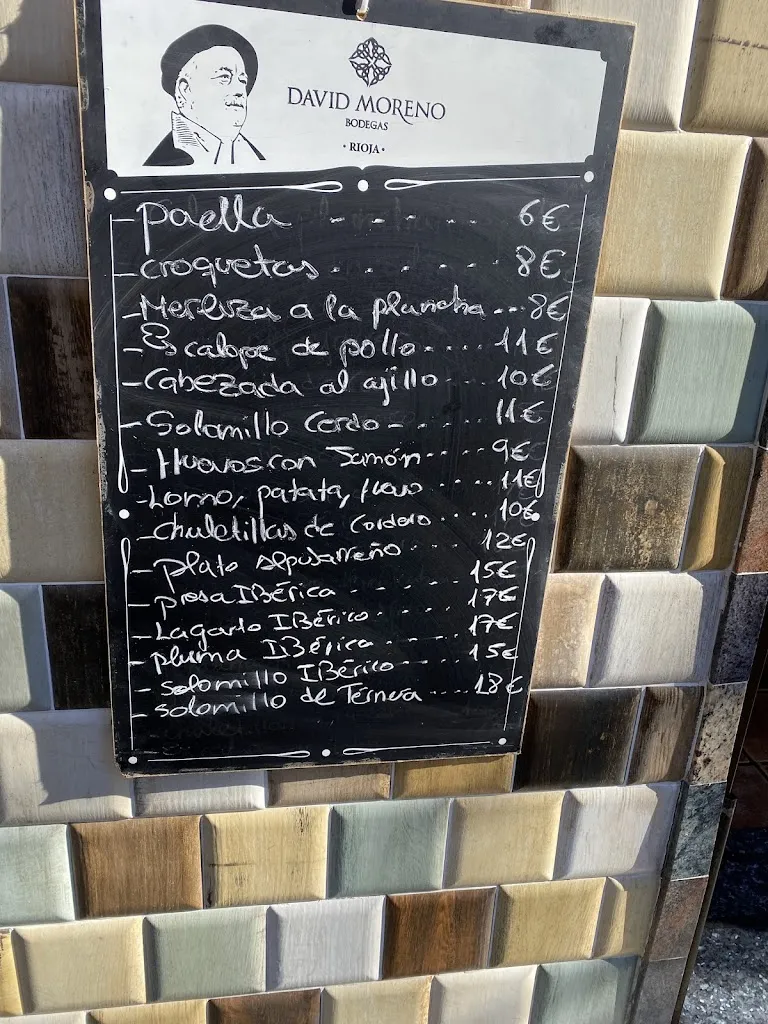 DAVID MORENO
BODEGAS
· RIOJA ·
- paella - - - - - 6€
- croquetas . - - - - 8€
- Merluza a la plancha --- 8€
- Escalope de pollo .... 11€
- Cabezada al ajillo ... 10€
- Solomillo Cerdo - ... 11€
- Huevos con Jamón .... 9€
- Lomo, patata, huevo .... 11€
- chuletillas de Cordero .... 10€
- plato Alpujarreño .... 12€
- presa IBérica - - - - 15€
- Lagarto IBérico .... 17€
- pluma IBérica .... 17€
- solomillo IBérico ---- 15€
- solomillo de Ternera .... 18€